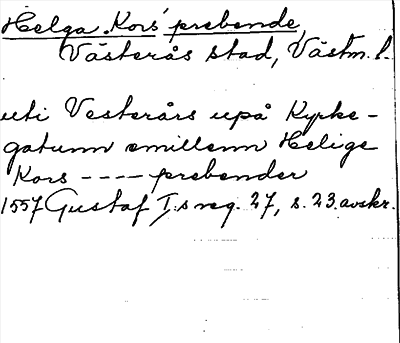 Helga Kors' prebende,
Västerås stad, Västm. l.
uti Vesterårs upå Kyrke-
gatunn emillenn Helige
Kors ---- prebender
1557 Gustaf I.s reg. 27, s. 23. avskr.